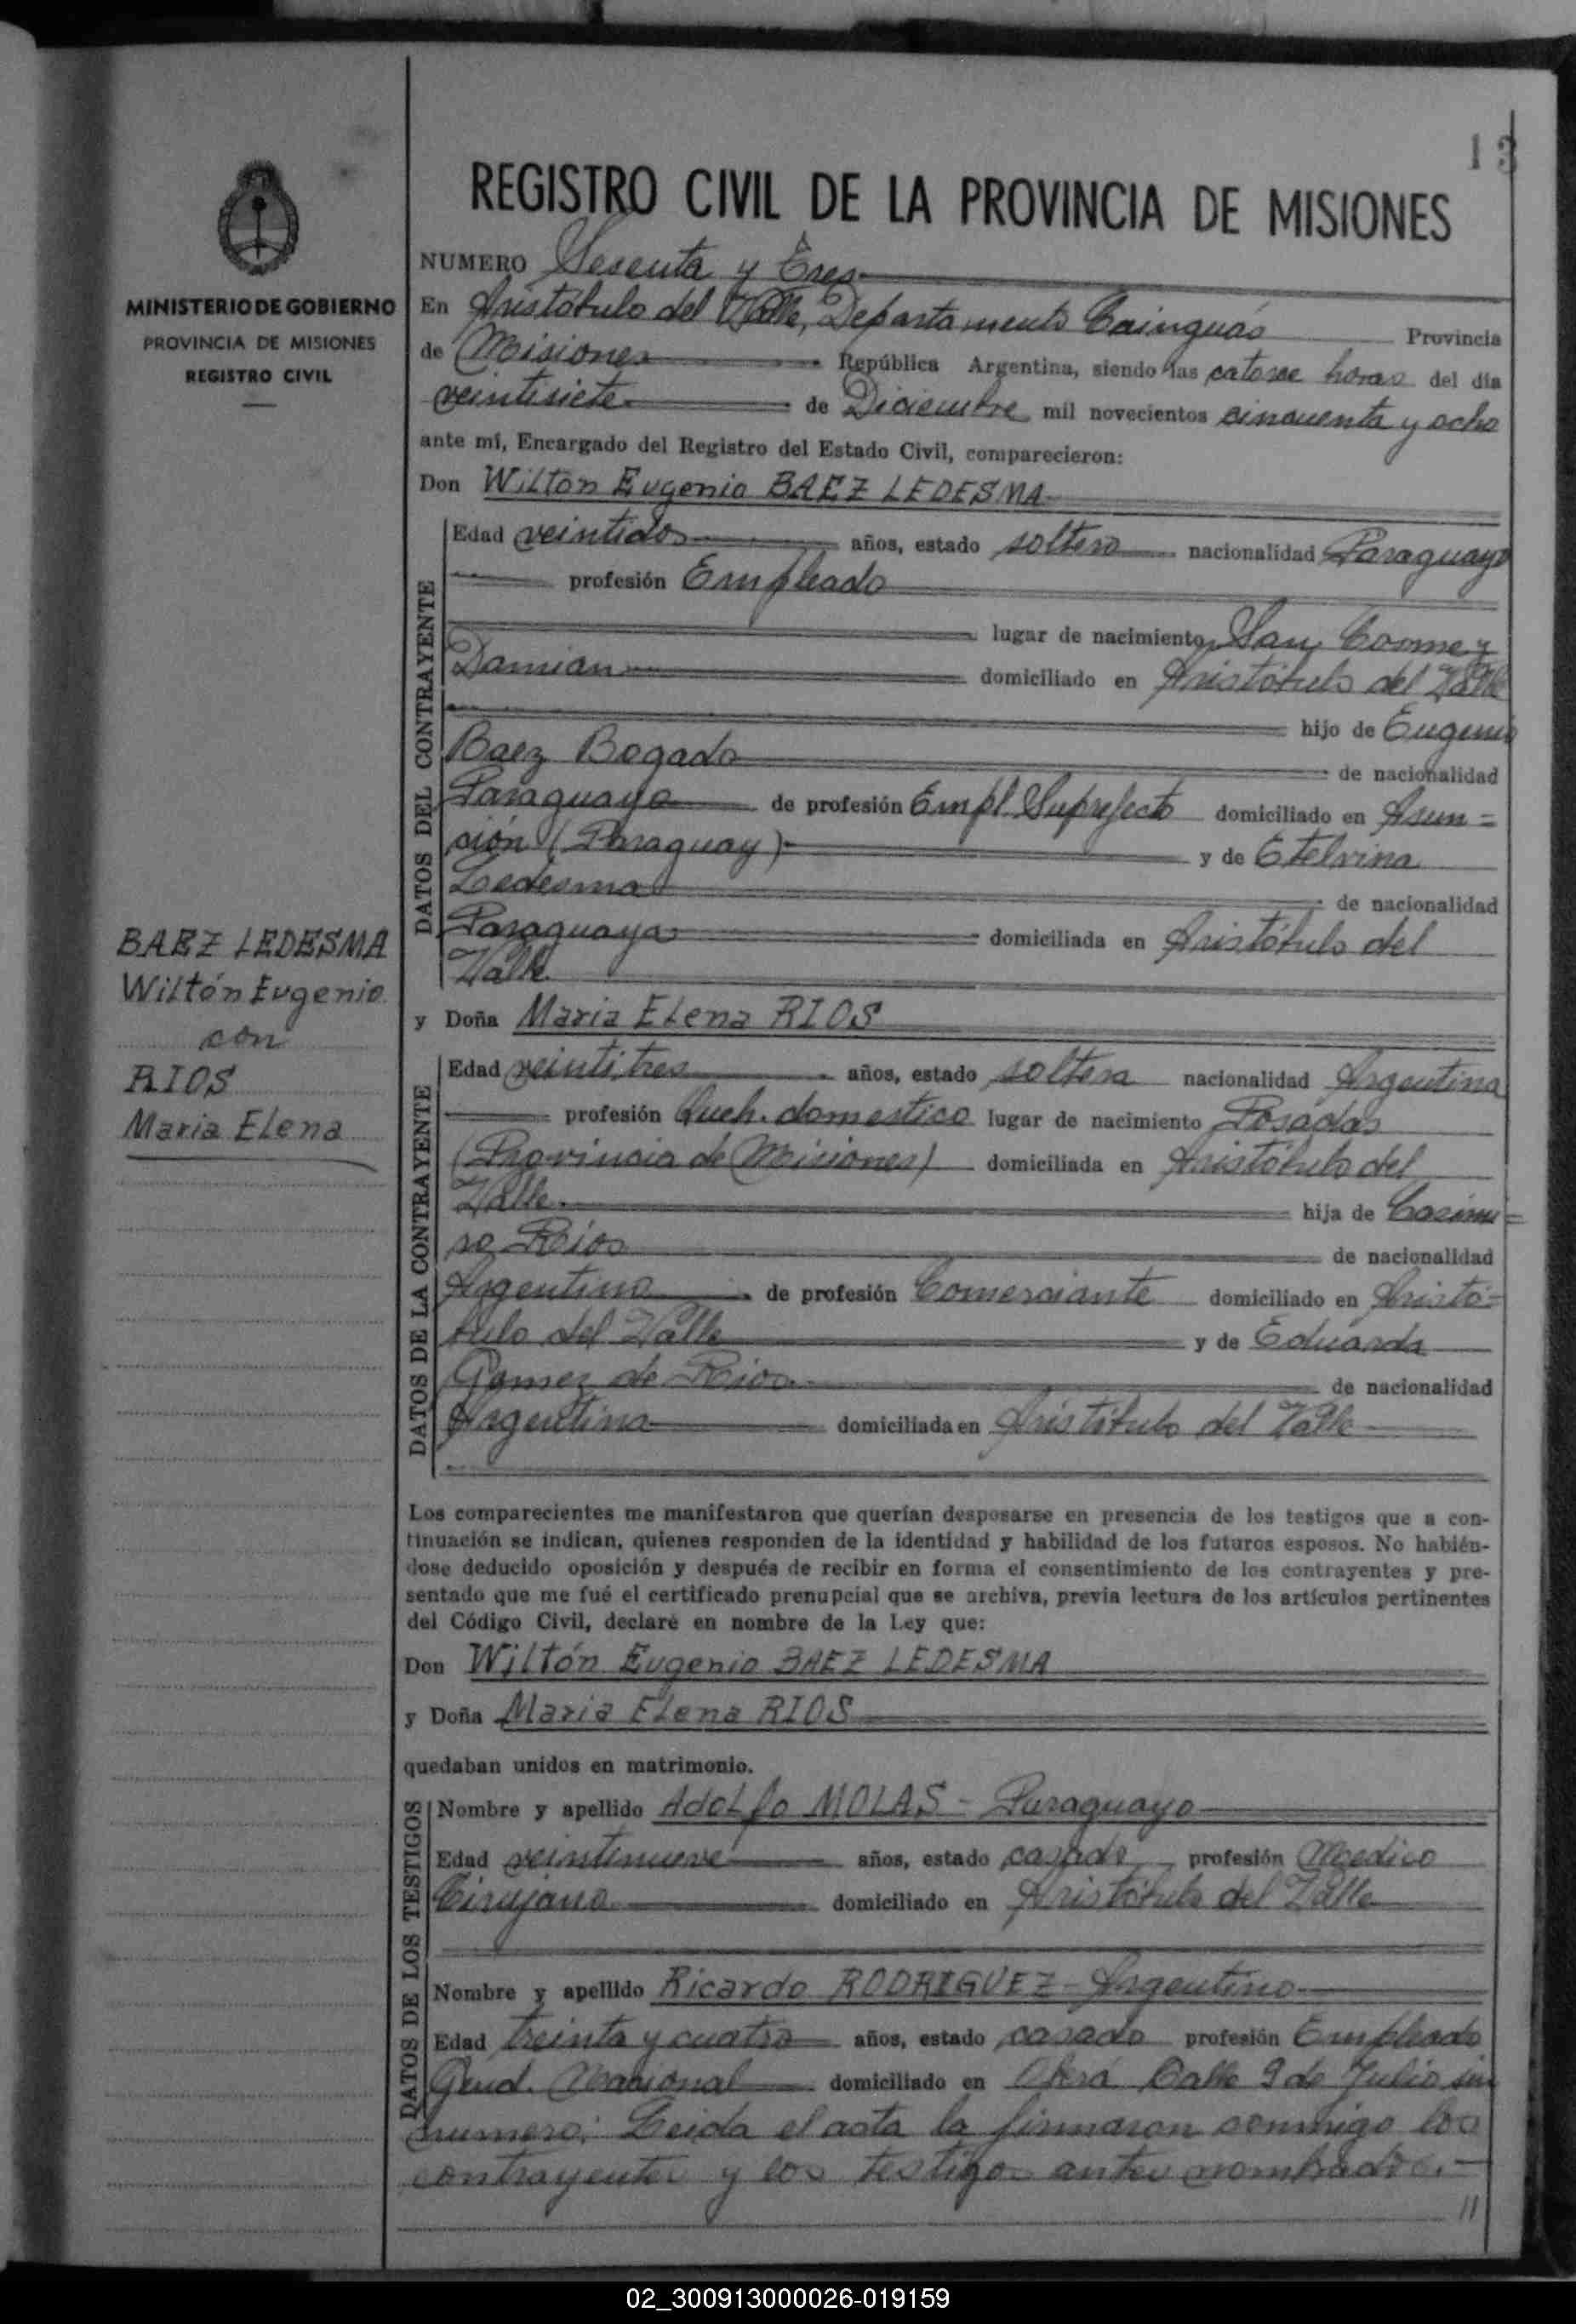 13
REGISTRO CIVIL DE LA PROVINCIA DE MISIONES
MINISTERIO DE GOBIERNO
PROVINCIA DE MISIONES
REGISTRO CIVIL
NUMERO Sesenta y Tres
En Aristóbulo del Valle, Departamento Cainguás Provincia
de Misiones República Argentina, siendo las catorce horas del día
veintisiete de Diciembre mil novecientos cincuenta y ocho
ante mí, Encargado del Registro del Estado Civil, comparecieron:
Don Wiltón Eugenio BAEZ LEDESMA
DATOS DEL CONTRAYENTE
Edad veintidos años, estado soltero nacionalidad Paraguayo
profesión Empleado
lugar de nacimiento San Cosme y
Damian domiciliado en Aristóbulo del Valle
hijo de Eugenio
Baez Bogado de nacionalidad
Paraguaya de profesión Empl. Suprefecto domiciliado en Asun=
ción (Paraguay) y de Etelvina
Ledesma de nacionalidad
Paraguaya domiciliada en Aristóbulo del
Valle
y Doña Maria Elena RIOS
BAEZ LEDESMA
Wiltón Eugenio
con
RIOS
Maria Elena
DATOS DE LA CONTRAYENTE
Edad veintitres años, estado soltera nacionalidad Argentina
profesión Queh. domestico lugar de nacimiento Posadas
(Provincia de Misiones) domiciliada en Aristóbulo del
Valle. hija de Casimi=
ro Rios de nacionalidad
Argentino de profesión Comerciante domiciliado en Aristó=
bulo del Valle y de Eduarda
Gomez de Rios de nacionalidad
Argentina domiciliada en Aristóbulo del Valle
Los comparecientes me manifestaron que querían desposarse en presencia de los testigos que a con-
tinuación se indican, quienes responden de la identidad y habilidad de los futuros esposos. No habién-
dose deducido oposición y después de recibir en forma el consentimiento de los contrayentes y pre-
sentado que me fué el certificado prenupcial que se archiva, previa lectura de los artículos pertinentes
del Código Civil, declaré en nombre de la Ley que:
Don Wiltón Eugenio BAEZ LEDESMA
y Doña Maria Elena RIOS
quedaban unidos en matrimonio.
DATOS DE LOS TESTIGOS
Nombre y apellido Adolfo MOLAS - Paraguayo
Edad veintinueve años, estado casado profesión Medico
Cirujano domiciliado en Aristóbulo del Valle
Nombre y apellido Ricardo RODRIGUEZ - Argentino
Edad treinta y cuatro años, estado casado profesión Empleado
Gend. Nacional domiciliado en Oberá Calle 9 de Julio sin
numero; Leida el acta la firmaron conmigo los
contrayentes y los testigos antes nombrados.-
//
02_300913000026-019159